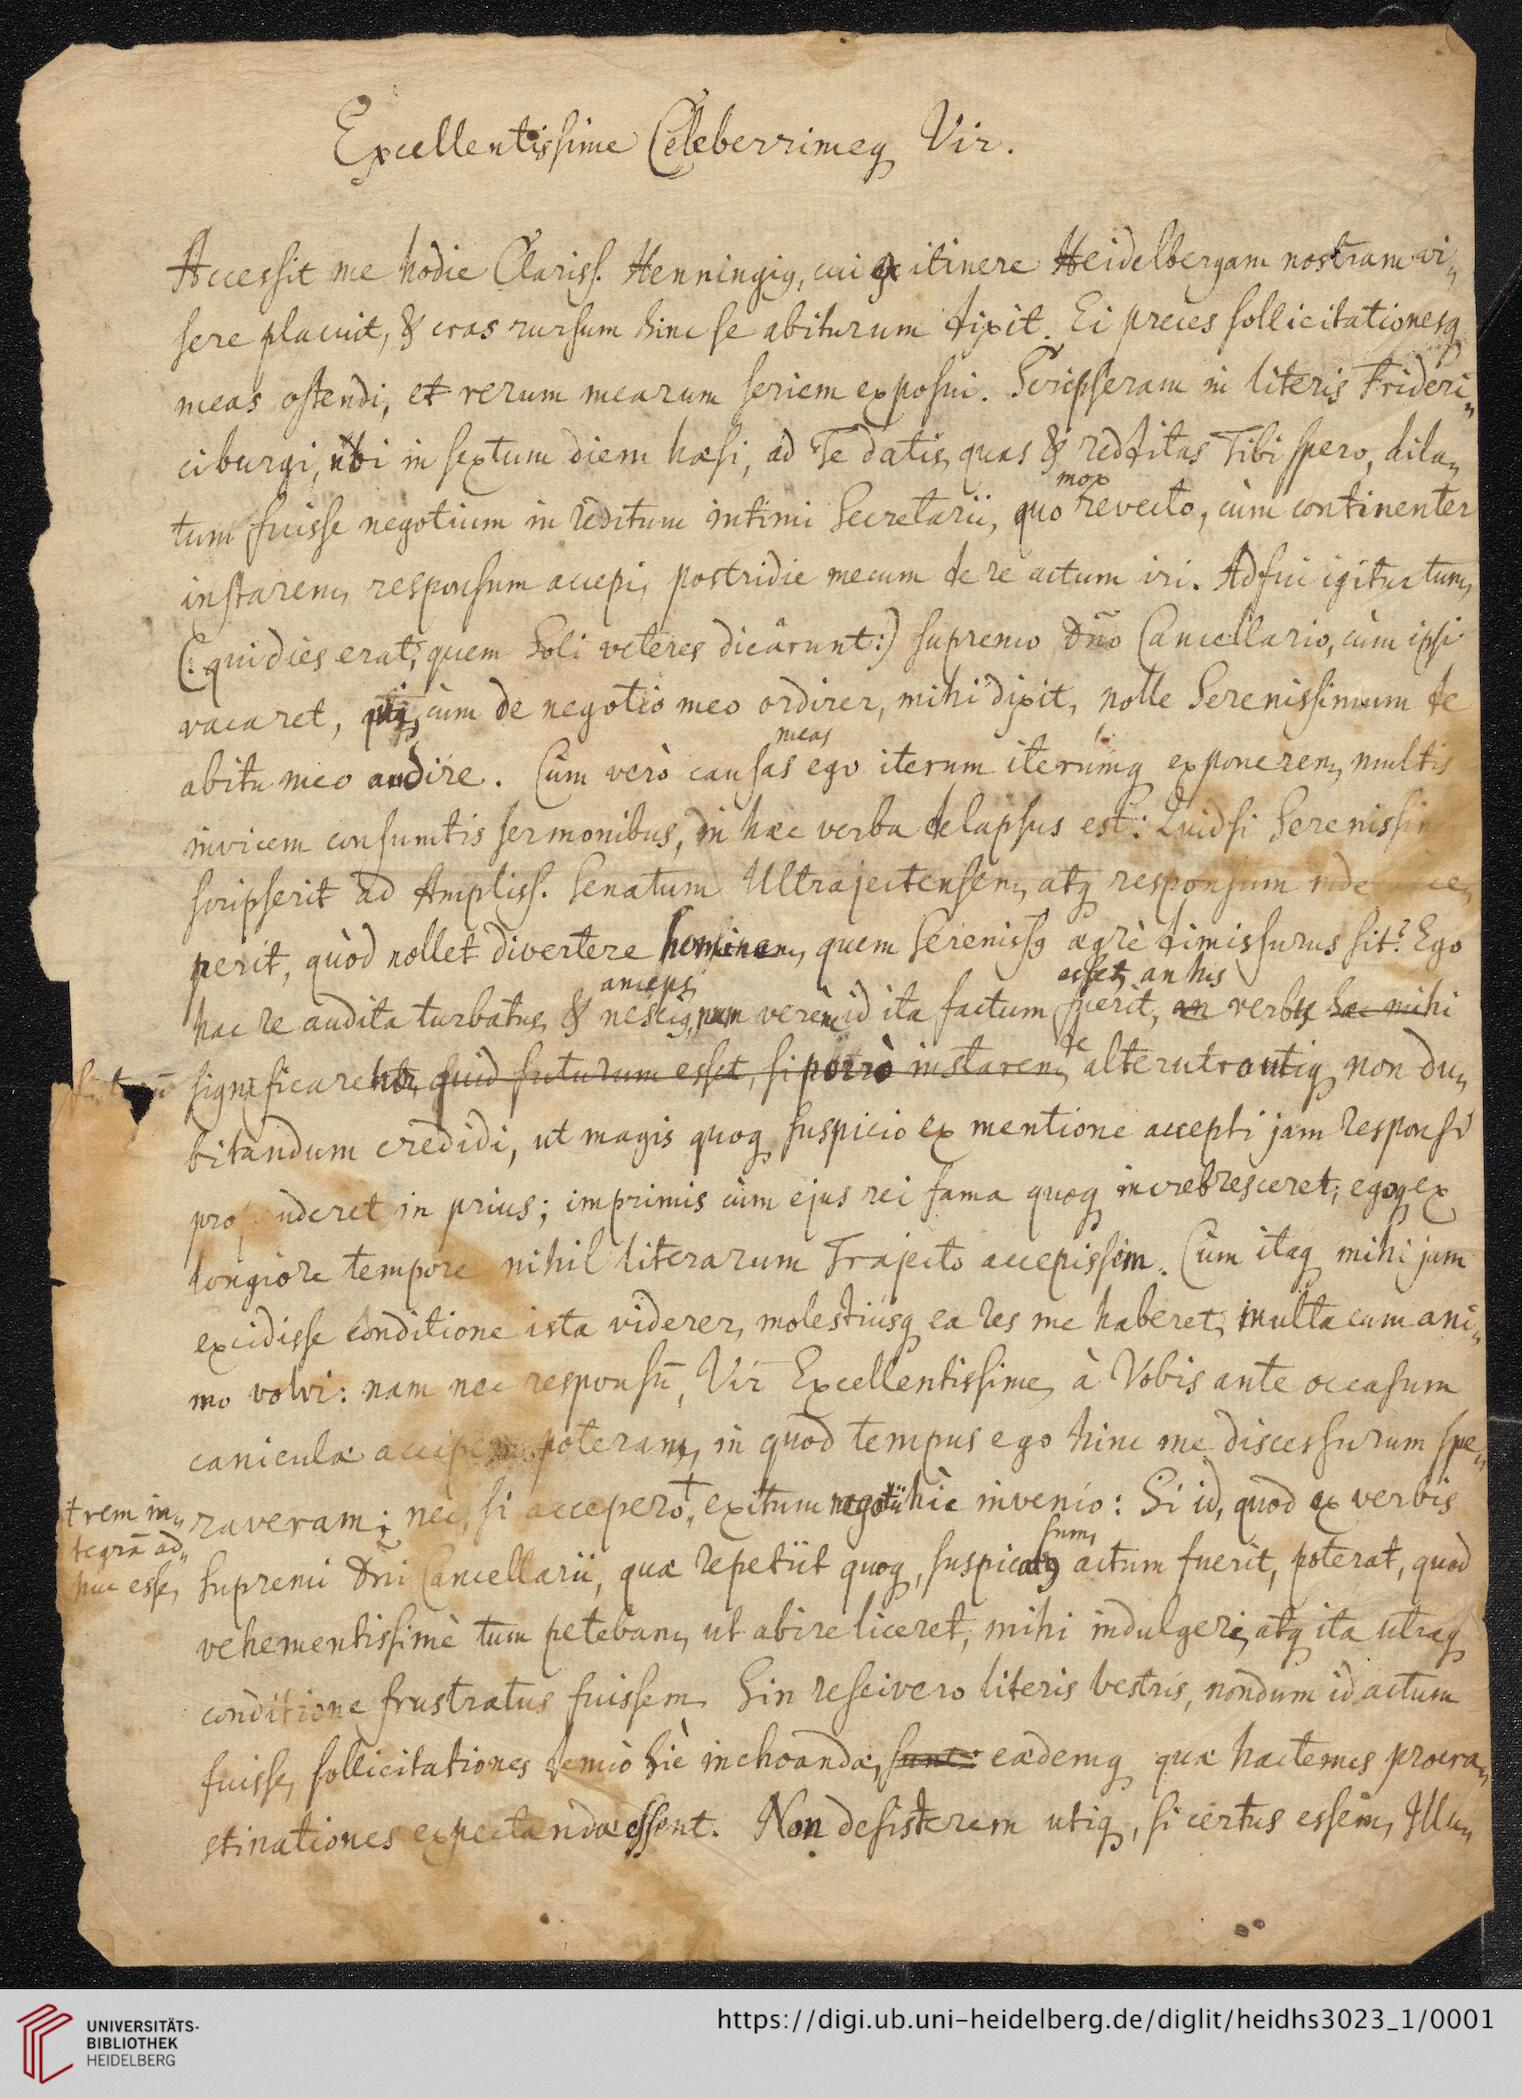 Excellentissime Celeberrimeq Vir.
Accessit me hodie Clariss. Henningig, cui ex itinere Heidelbergam nostram vi„
sere placuit, & cras rursum hinc se abiturum dixit. Ei preces sollicitationesq
meas ostendi, et rerum mearum seriem exposui. Scripseram in literis Frideri„
ciburgi, ubi in sextum diem hæsi, ad Te datis, quas & redditas Tibi spero, dila„
mox
tum fuisse negotium in reditum intimi Secretarii, quo revecto, cùm continenter
instarem, responsum accepi, postridie mecum de re actum iri. Adfui igitur tum,
(: qui dies erat, quem Soli veteres dicârunt:) supremo Dño Cancellario, cùm ipsi
vacaret, cùm de negotio meo ordirer, mihi dixit, nolle Serenissimum de
meas
abitu meo audire. Cùm verò causas ego iterum iterúmq exponerem, multis
invicem consumtis sermonibus, in hæc verba delapsus est: Quid si Serenissim
scripserit ad Ampliss. Senatum Ultrajectensem, atq responsum inde acce„
perit, quòd nollet divertere hominem, quem Sereniss9 ægrè dimissurus sit? Ego
anceps esset, an his
hac re audita turbatus, & nescig, num verène id ita factum fuerit, an verbis hæc mihi
de
significarentur, quid futurum esset, si porrò instarem, alterutro utiq non du„
bitandum credidi, ut magis quoq suspicio ex mentione accepti jam responsi
pro uderet in prius; imprimis cùm ejus rei fama quoq increbresceret, egoq ex
longiore tempore nihil literarum Trajecto accepissem. Cùm itaq mihi jam
excidisse conditione ista viderer, molestiúsq ea res me haberet, multa cum ani„
mo volvi: nam nec responsū, Vir Excellentissime, à Vobis ante occasum
caniculæ accipere poteram, in quod tempus ego hinc me discessurum spe„
raveram; nec, si accepero†, exitum negotii hîc invenio: Si id, quod ex verbis
† rem in„
tegrā ad„
huc esse,
sum,
Supremi Dñi Cancellarii, quæ repetiit quoq, suspicatg actum fuerit, poterat, quod
vehementissimè tum petebam, ut abire liceret, mihi indulgeri, atq ita utraq
conditione frustratus fuissem. Sin rescivero literis vestris, nondum id actum
fuisse, sollicitationes denuò hîc inchoandæ, sunt: eædemq quæ hactenus procra„
stinationes expectandæ essent. Non desisterem utiq, si certus essem, Illu„
UNIVERSITÄTS-
BIBLIOTHEK
HEIDELBERG
https://digi.ub.uni-heidelberg.de/diglit/heidhs3023_1/0001